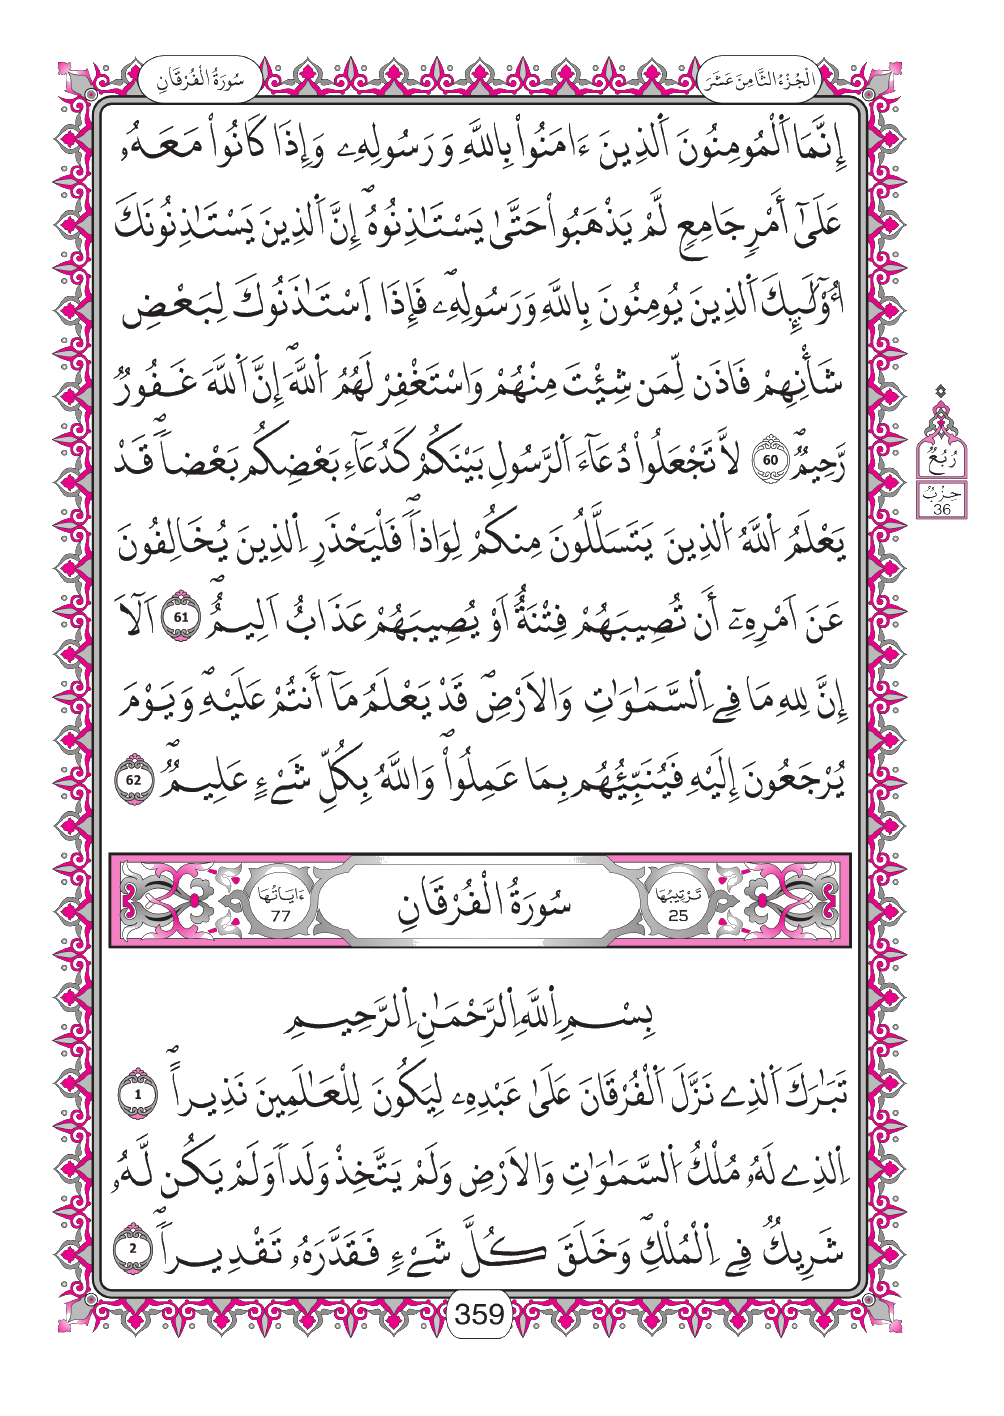 الْجُزْءُ الثَّامِنَ عَشَرَ
سُورَةُ الْفُرْقَانِ
إِنَّمَا اَ۬لْمُومِنُونَ اَ۬لذِينَ ءَامَنُواْ بِاللَّهِ وَرَسُولِهِۦ وَإِذَا كَانُواْ مَعَهُۥ
عَلَىٰٓ أَمْرٖ جَامِعٖ لَّمْ يَذْهَبُواْ حَتَّىٰ يَسْتَـٰذِنُوهُۖ إِنَّ اَ۬لذِينَ يَسْتَـٰذِنُونَكَ
أُوْلَـٰٓئِكَ اَ۬لذِينَ يُومِنُونَ بِاللَّهِ وَرَسُولِهِۦۖ فَإِذَا اَ۪سْتَـٰذَنُوكَ لِبَعْضِ
شَأْنِهِمْ فَاذَن لِّمَن شِئْتَ مِنْهُمْ وَاسْتَغْفِرْ لَهُمُ اُ۬للَّهَۖ إِنَّ اَ۬للَّهَ غَفُورٞ
رَّحِيمٞۖ 60 لَّا تَجْعَلُواْ دُعَآءَ اَ۬لرَّسُولِ بَيْنَكُمْ كَدُعَآءِ بَعْضِكُم بَعْضاٗۖ قَدْ
يَعْلَمُ اُ۬للَّهُ اُ۬لذِينَ يَتَسَلَّلُونَ مِنكُمْ لِوَاذاٗۖ فَلْيَحْذَرِ اِ۬لذِينَ يُخَالِفُونَ
عَنَ اَمْرِهِۦٓ أَن تُصِيبَهُمْ فِتْنَةٌ اَوْ يُصِيبَهُمْ عَذَابٌ اَلِيمٌۖ 61 اَلَآ
إِنَّ لِلهِ مَا فِے اِ۬لسَّمَـٰوَٰتِ وَالَارْضِۖ قَدْ يَعْلَمُ مَآ أَنتُمْ عَلَيْهِۖ وَيَوْمَ
يُرْجَعُونَ إِلَيْهِ فَيُنَبِّئُهُم بِمَا عَمِلُواْۖ وَاللَّهُ بِكُلِّ شَےْءٍ عَلِيمٞۖ 62
رُبُعُ
حِزْبُ
36
تَرْتِيبُهَا
25
سُورَةُ الْفُرْقَانِ
ءَايَاتُهَا
77
بِسْمِ اِ۬للَّهِ اِ۬لرَّحْمَـٰنِ اِ۬لرَّحِيمِ
تَبَـٰرَكَ اَ۬لذِے نَزَّلَ اَ۬لْفُرْقَانَ عَلَىٰ عَبْدِهِۦ لِيَكُونَ لِلْعَـٰلَمِينَ نَذِيراًۖ 1
اِ۬لذِے لَهُۥ مُلْكُ اُ۬لسَّمَـٰوَٰتِ وَالَارْضِ وَلَمْ يَتَّخِذْ وَلَداٗ وَلَمْ يَكُن لَّهُۥ
شَرِيكٞ فِے اِ۬لْمُلْكِۖ وَخَلَقَ كُلَّ شَےْءٖ فَقَدَّرَهُۥ تَقْدِيراٗۖ 2
359